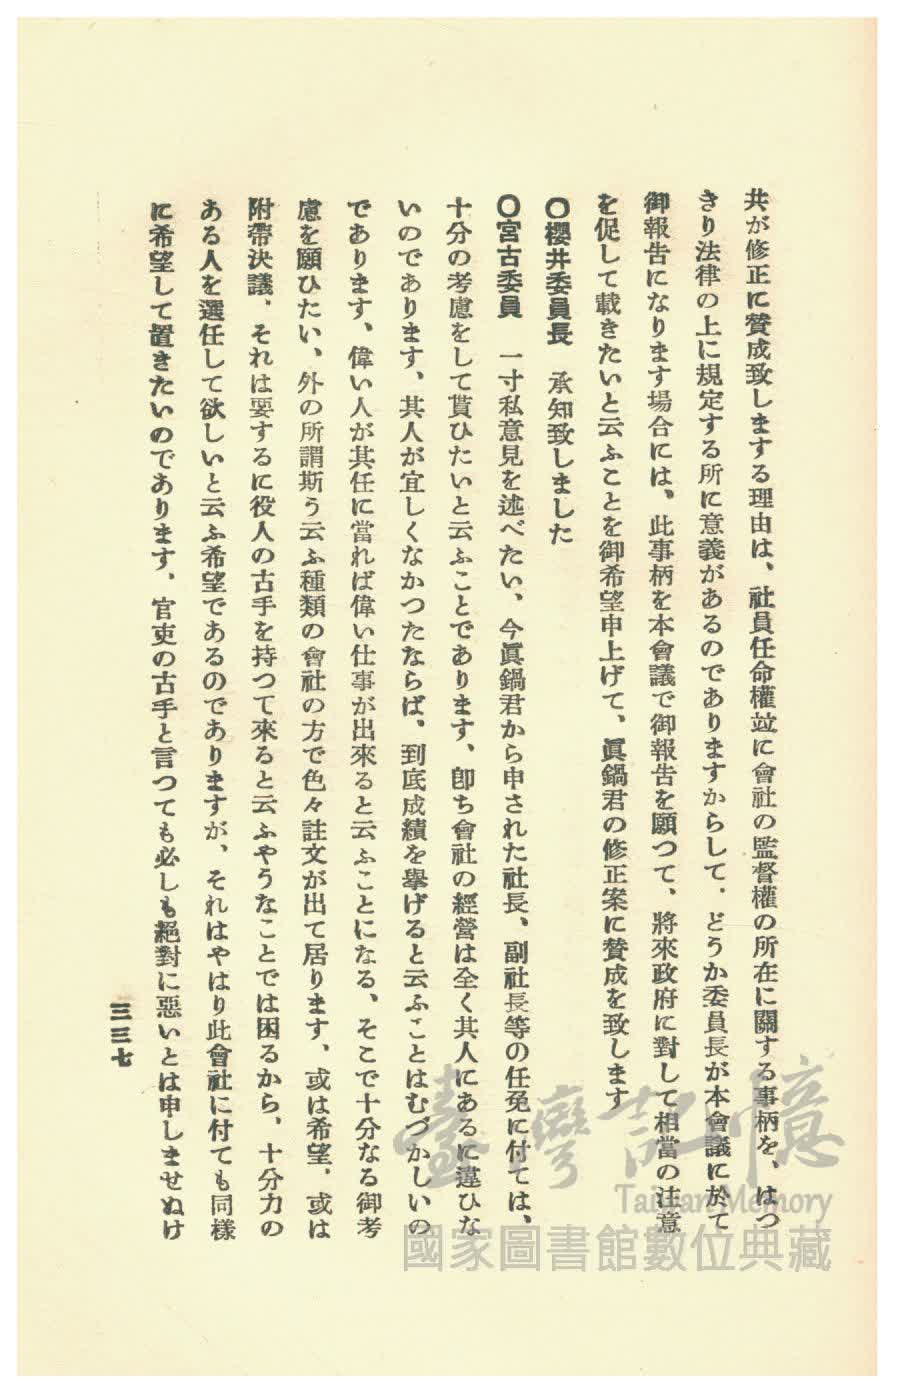 共が修正に賛成致しまする理由は、社員任命權竝に會社の監督權の所在に關する事柄を、はつ
きり法律の上に規定する所に意義があるのでありますからして、どうか委員長が本會議に於て
御報告になります場合には、此事柄を本會議で御報告を願つて、將來政府に對して相當の注意
を促して載きたいと云ふことを御希望申上げて、眞鍋君の修正案に賛成を致します
〇櫻井委員長　承知致しました
〇宮古委員　一寸私意見を述べたい、今眞鍋君から申された社長、副社長等の任免に付ては、
十分の考慮をして貰ひたいと云ふことであります、卽ち會社の經營は全く其人にあるに違ひな
いのであります、其人が宜しくなかつたならば、到底成績を擧げると云ふことはむづかしいの
であります、偉い人が其任に當れば偉い仕事が出來ると云ふことになる、そこで十分なる御考
慮を願ひたい、外の所謂斯う云ふ種類の會社の方で色々註文が出て居ります、或は希望、或は
附帶決議、それは要するに役人の古手を持つて來ると云ふやうなことでは困るから、十分力の
ある人を選任して欲しいと云ふ希望であるのでありますが、それはやはり此會社に付ても同樣
に希望して置きたいのであります、官吏の古手と言つても必しも絕對に惡いとは申しませぬけ
三三七
臺灣記憶
Taiwan Memory
國家圖書館數位典藏